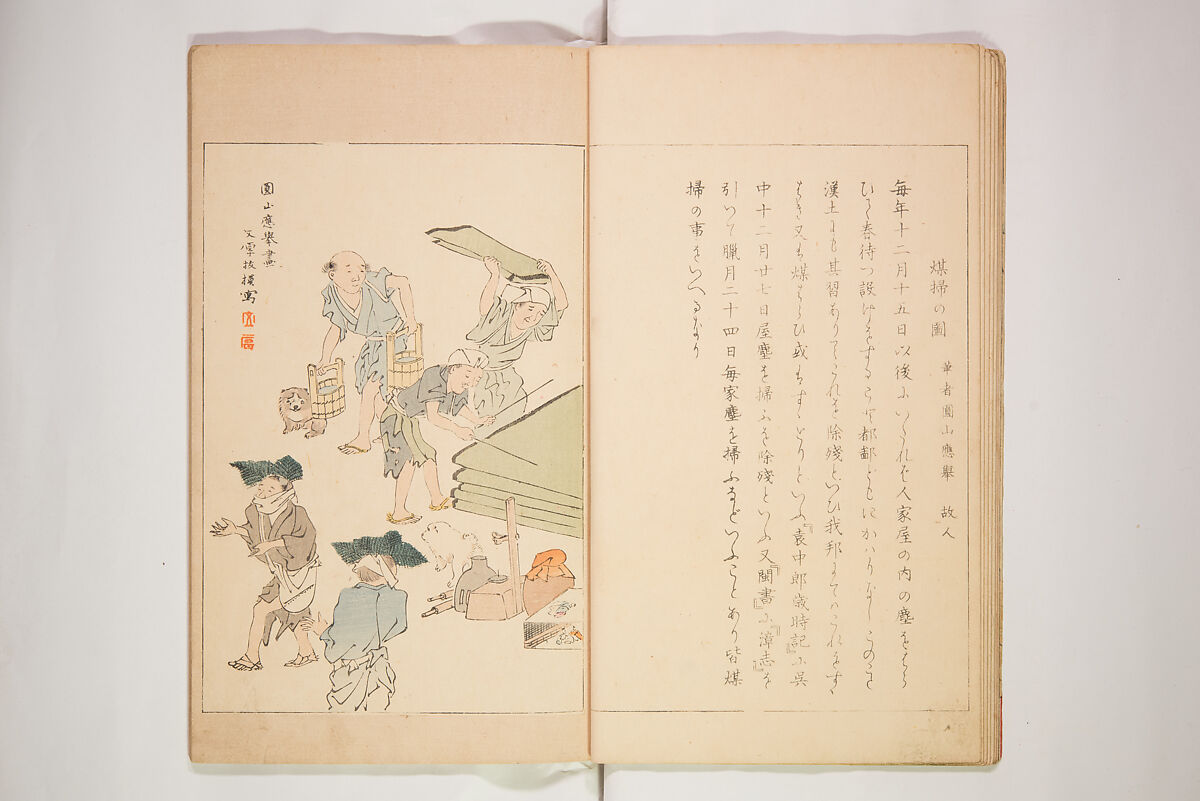 煤掃の圖 華者圓山應擧 故人
毎年十二月十五日以後にいたれば人家屋の内の塵をはら
ひて春待つ設けをすること都鄙ともにかはりなしこのこと
漢土にも其習ありてこれを除殘といひ我邦にてハこれをすゝ
はき又も煤はらひ或もすゝとりといふ『袁中郎歳時記』に呉
中十二月廿七日屋塵を掃ふを除殘といふ又『閩書』に『漳志』を
引いて臘月二十四日毎家塵を掃ふなどいふことあり皆煤
掃の事をいへるなり
圓山應擧畫
文